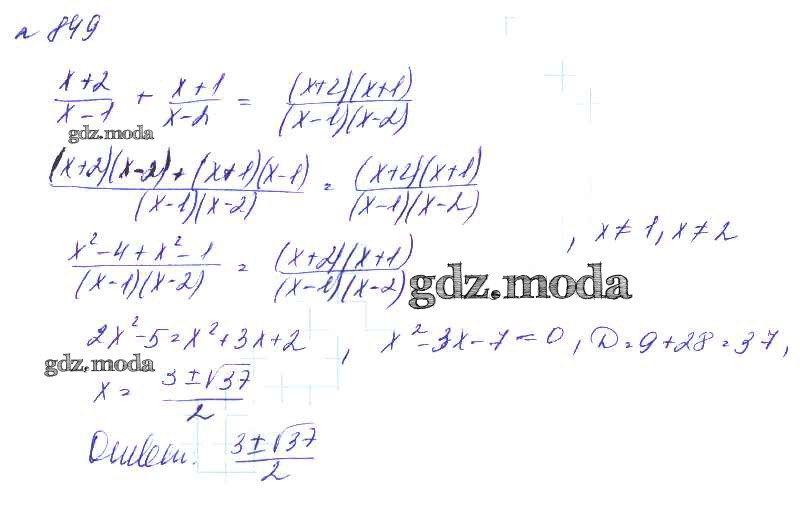 № 849
(x+2)/(x-1) + (x+1)/(x-2) = ((x+2)(x+1))/((x-1)(x-2))
gdz.moda
((x+2)(x-2)+(x+1)(x-1))/((x-1)(x-2)) = ((x+2)(x+1))/((x-1)(x-2))
(x²-4+x²-1)/((x-1)(x-2)) = ((x+2)(x+1))/((x-1)(x-2)) , x≠1, x≠2
gdz.moda
2x²-5=x²+3x+2 , x²-3x-7=0, D=9+28=37,
gdz.moda
x= (3±√37)/2
Ответ. (3±√37)/2